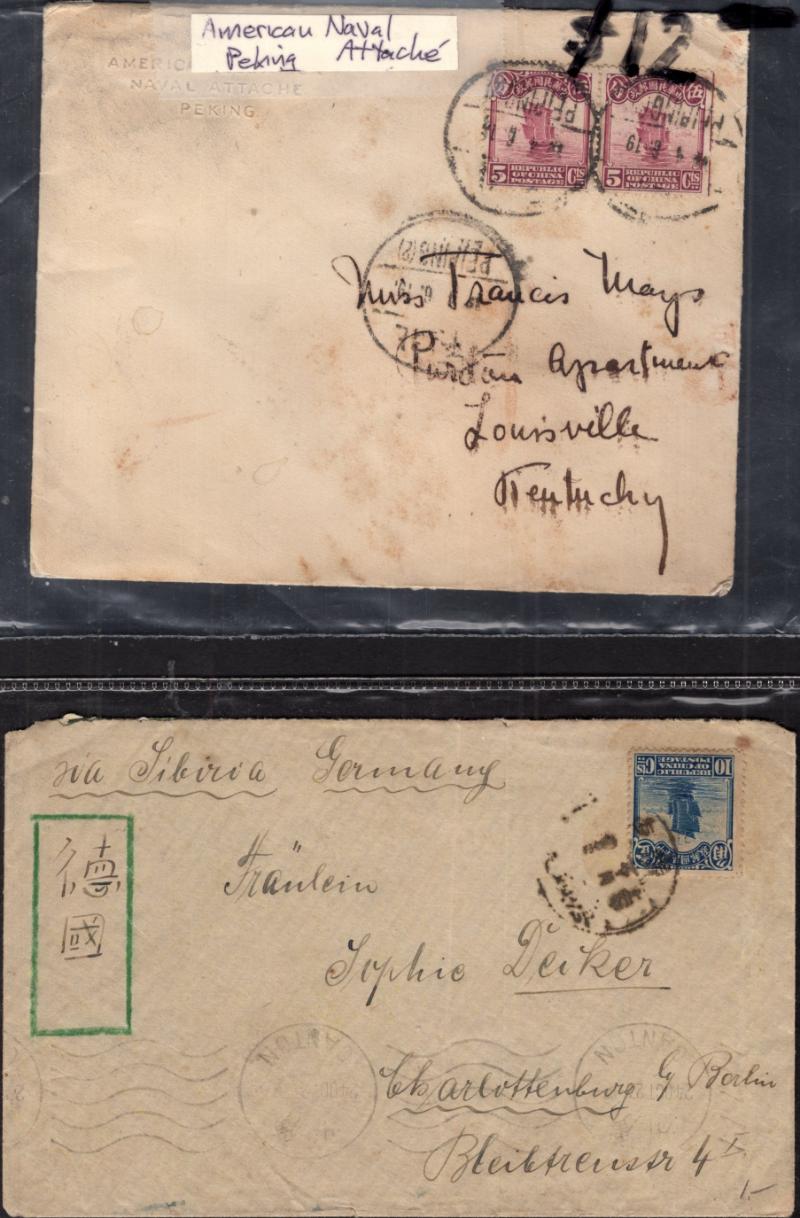 American Naval
Peking Attaché
$12
AMERIC
NAVAL ATTACHE
PEKING
5 REPUBLIC OF CHINA POSTAGE Cts
5 REPUBLIC OF CHINA POSTAGE Cts
PEIPING
PEIPING
PEIPING (2)
Miss Francis Mays
Apartment
Louisville
Kentucky
via Sibiria Germany
10 REPUBLIC OF CHINA POSTAGE Cts
德
國
Fräulein
Sophie Deiker
CANTON
CANTON
Charlottenburg Berlin
Bleibtreustr 4 I
1.-